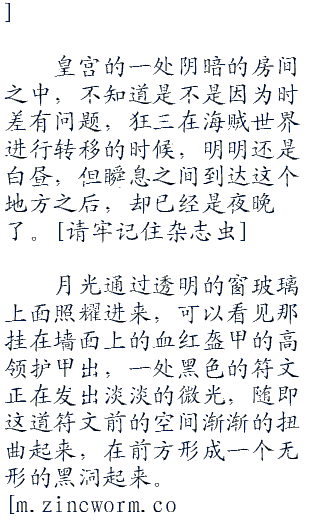 ]
皇宫的一处阴暗的房间
之中，不知道是不是因为时
差有问题，狂三在海贼世界
进行转移的时候，明明还是
白昼，但瞬息之间到达这个
地方之后，却已经是夜晚
了。[请牢记住杂志虫]
月光通过透明的窗玻璃
上面照耀进来，可以看见那
挂在墙面上的血红盔甲的高
领护甲出，一处黑色的符文
正在发出淡淡的微光，随即
这道符文前的空间渐渐的扭
曲起来，在前方形成一个无
形的黑洞起来。
[m.zincworm.co